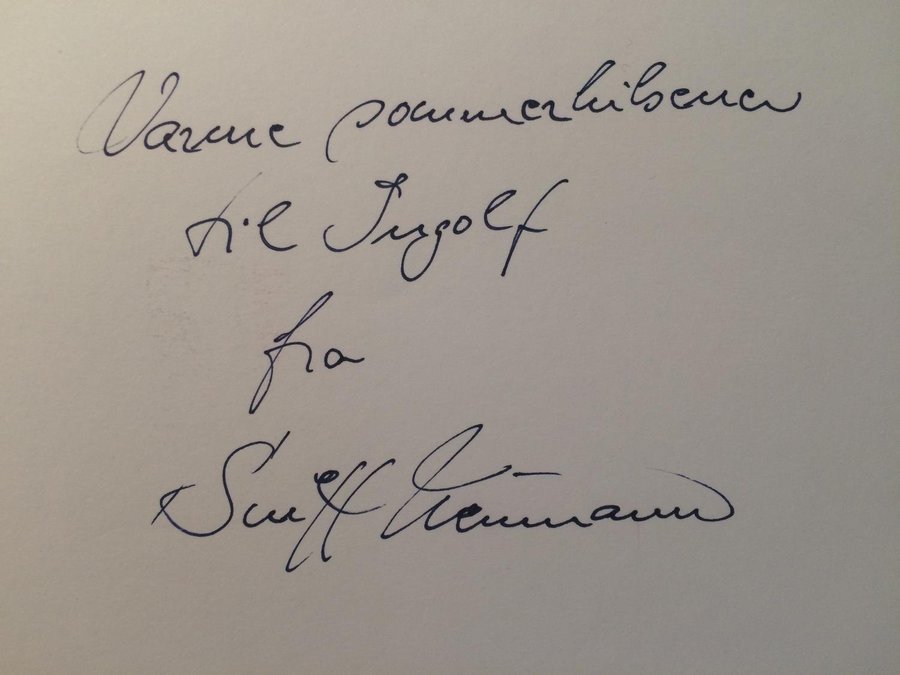 Varme sommerhilsener
til Ingolf
fra
Sniff Neumann